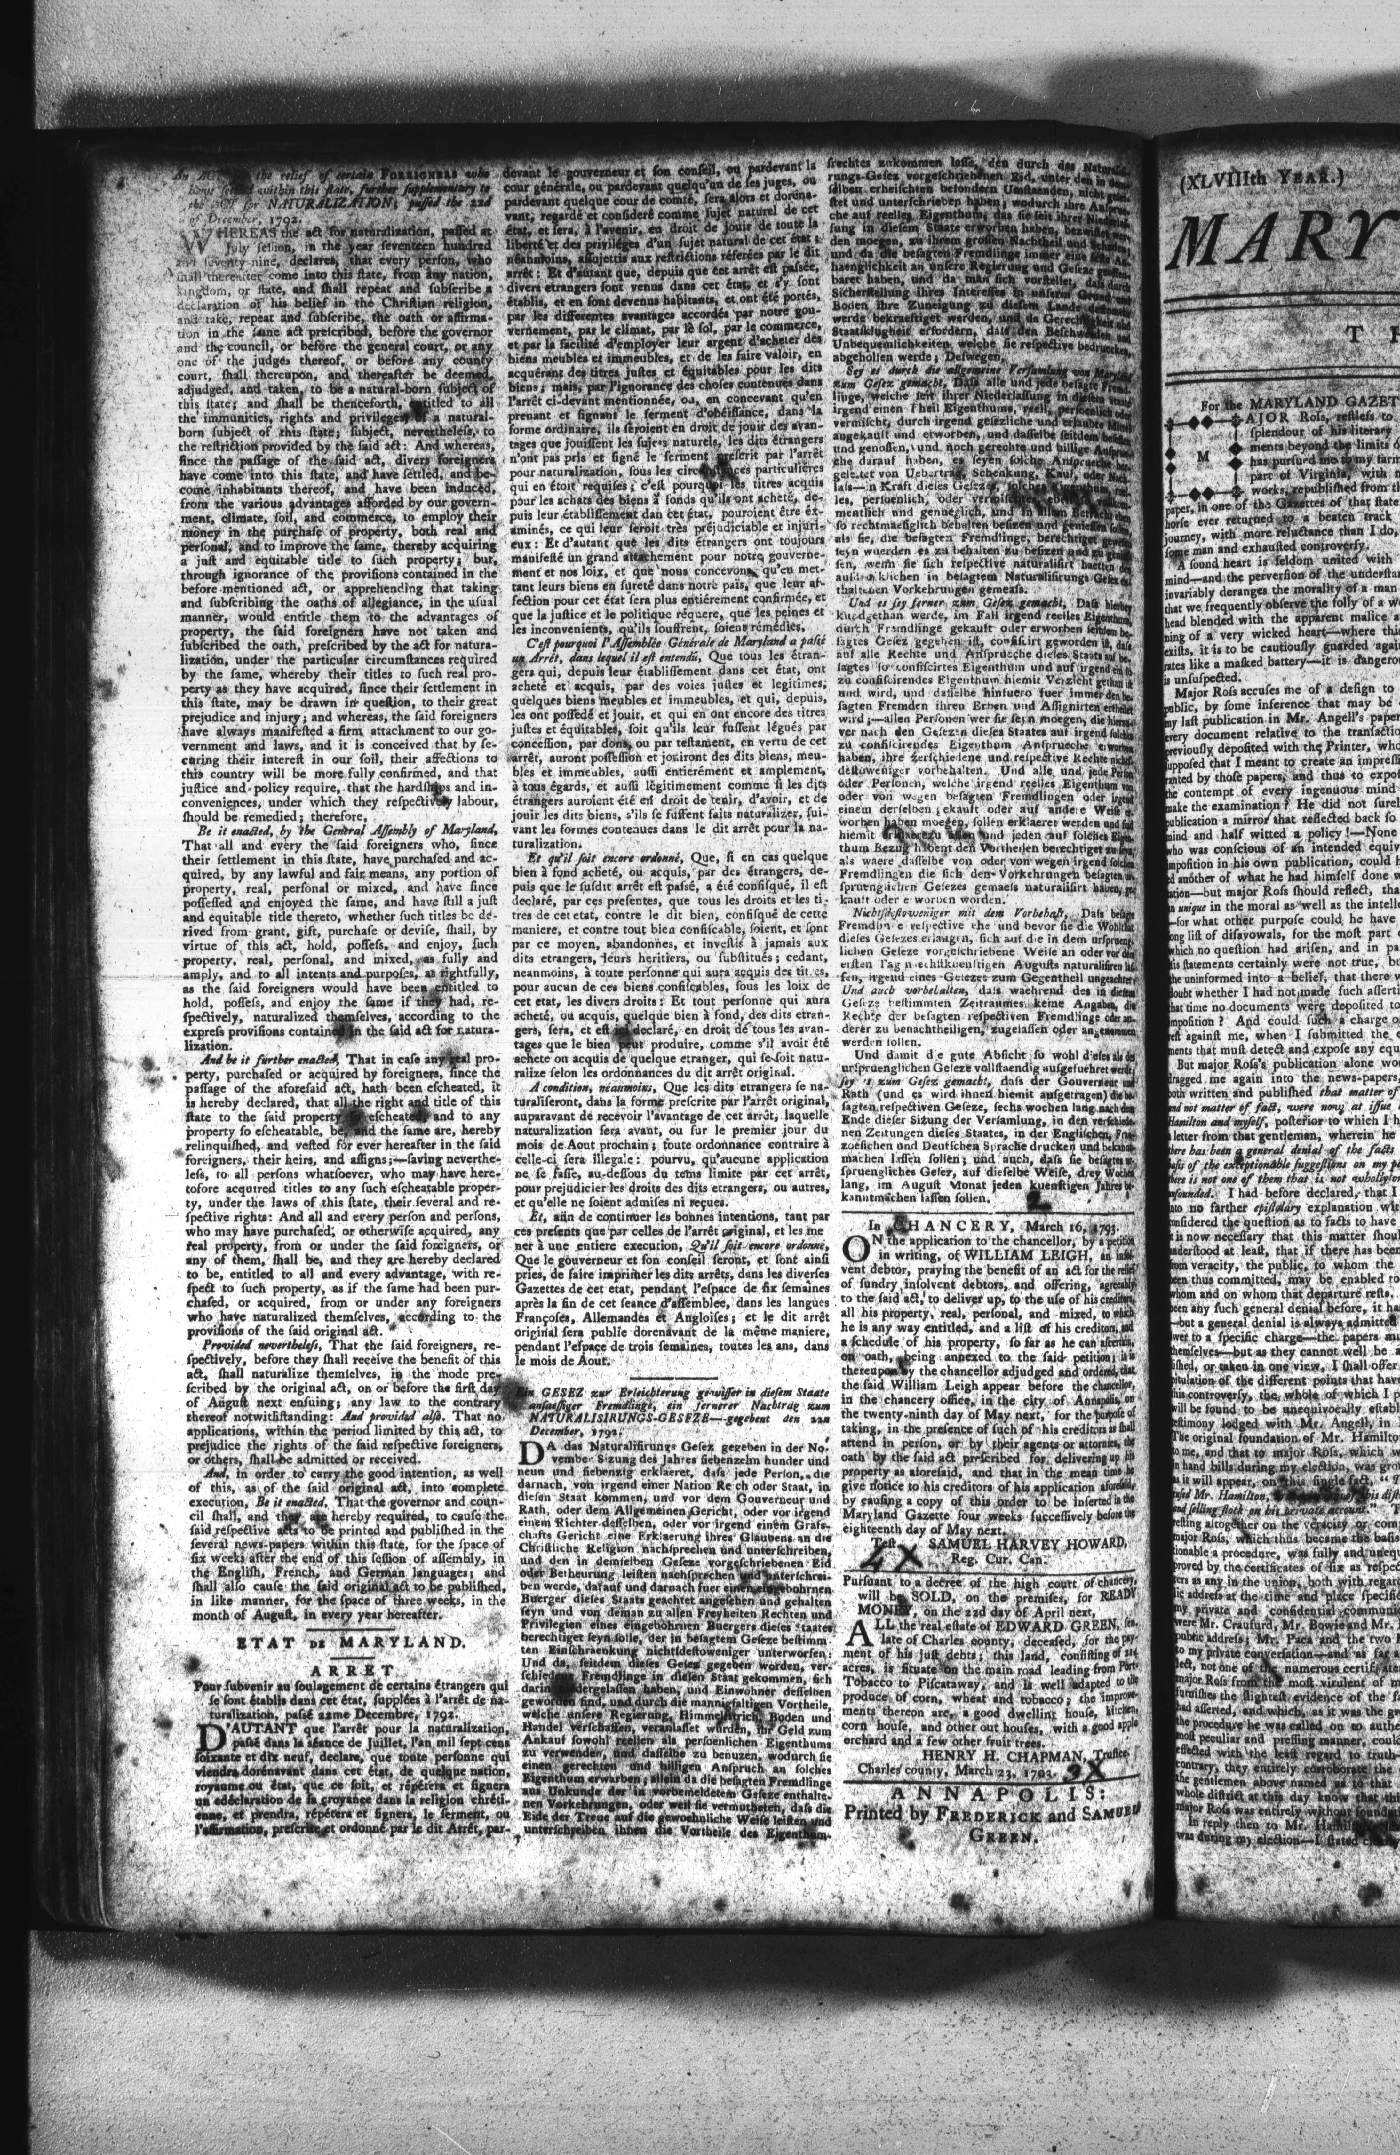 An ACT the relief of certain FOREIGNERS who
have settled within this state, further supplementary to
the ACT for NATURALIZATION; passed the 22d
of December, 1792.
WHEREAS the act for naturalization, passed at
July session, in the year seventeen hundred
and seventy-nine, declares, that every person, who
shall thereafter come into this state, from any nation,
kingdom, or state, and shall repeat and subscribe a
declaration of his belief in the Christian religion,
and take, repeat and subscribe, the oath or affirma-
tion in the same act prescribed, before the governor
and the council, or before the general court, or any
one of the judges thereof, or before any county
court, shall thereupon, and thereafter be deemed,
adjudged, and taken, to be a natural-born subject of
this state; and shall be thenceforth, entitled to all
the immunities, rights and privileges of a natural-
born subject of this state; subject, nevertheless, to
the restriction provided by the said act: And whereas,
since the passage of the said act, divers foreigners
have come into this state, and have settled, and be-
come inhabitants thereof, and have been induced,
from the various advantages afforded by our govern-
ment, climate, soil, and commerce, to employ their
money in the purchase of property, both real and
personal, and to improve the same, thereby acquiring
a just and equitable title to such property; but,
through ignorance of the provisions contained in the
before-mentioned act, or apprehending that taking
and subscribing the oaths of allegiance, in the usual
manner, would entitle them to the advantages of
property, the said foreigners have not taken and
subscribed the oath, prescribed by the act for natura-
lization, under the particular circumstances required
by the same, whereby their titles to such real pro-
perty as they have acquired, since their settlement in
this state, may be drawn in question, to their great
prejudice and injury; and whereas, the said foreigners
have always manifested a firm attachment to our go-
vernment and laws, and it is conceived that by se-
curing their interest in our soil, their affections to
this country will be more fully confirmed, and that
justice and policy require, that the hardships and in-
conveniences, under which they respectively labour,
should be remedied; therefore,
Be it enacted, by the General Assembly of Maryland,
That all and every the said foreigners who, since
their settlement in this state, have purchased and ac-
quired, by any lawful and fair means, any portion of
property, real, personal or mixed, and have since
possessed and enjoyed the same, and have still a just
and equitable title thereto, whether such titles be de-
rived from grant, gift, purchase or devise, shall, by
virtue of this act, hold, possess, and enjoy, such
property, real, personal, and mixed, as fully and
amply, and to all intents and purposes, as rightfully,
as the said foreigners would have been entitled to
hold, possess, and enjoy the same if they had, re-
spectively, naturalized themselves, according to the
express provisions contained in the said act for natura-
lization.
And be it further enacted, That in case any real pro-
perty, purchased or acquired by foreigners, since the
passage of the aforesaid act, hath been escheated, it
is hereby declared, that all the right and title of this
state to the said property so escheated and to any
property so escheatable, be, and the same are, hereby
relinquished, and vested for ever hereafter in the said
foreigners, their heirs, and assigns;—saving neverthe-
less, to all persons whatsoever, who may have here-
tofore acquired titles to any such escheatable proper-
ty, under the laws of this state, their several and re-
spective rights: And all and every person and persons,
who may have purchased, or otherwise acquired, any
real property, from or under the said foreigners, or
any of them, shall be, and they are hereby declared
to be, entitled to all and every advantage, with re-
spect to such property, as if the same had been pur-
chased, or acquired, from or under any foreigners
who have naturalized themselves, according to the
provisions of the said original act.
Provided nevertheless, That the said foreigners, re-
spectively, before they shall receive the benefit of this
act, shall naturalize themselves, in the mode pre-
scribed by the original act, on or before the first day
of August next ensuing; any law to the contrary
thereof notwithstanding: And provided also, That no
applications, within the period limited by this act, to
prejudice the rights of the said respective foreigners,
or others, shall be admitted or received.
And, in order to carry the good intention, as well
of this, as of the said original act, into complete
execution, Be it enacted, That the governor and coun-
cil shall, and they are hereby required, to cause the
said respective acts to be printed and published in the
several news-papers within this state, for the space of
six weeks after the end of this session of assembly, in
the English, French, and German languages; and
shall also cause the said original act to be published,
in like manner, for the space of three weeks, in the
month of August, in every year hereafter.
ETAT DE MARYLAND.
ARRET
Pour subvenir au soulagement de certains étrangers qui
se sont établis dans cet état, supplées à l'arrêt de na-
turalization, passé 22me Decembre, 1792.
D'AUTANT que l'arrêt pour la naturalization,
passé dans la séance de Juillet, l'an mil sept cens
soixante et dix neuf, declare, que toute personne qui
viendra dorénavant dans cet état, de quelque nation,
royaume ou état, que ce soit, et répétera et signera
un edéclaration de sa croyance dans la religion chréti-
enne, et prendra, répétera et signera, le serment, ou
l'affirmation, prescrite et ordonné par le dit Arrêt, par-
devant le gouverneur et son conseil, ou pardevant la
cour générale, ou pardevant quelqu'un de ses juges, ou
pardevant quelque cour de comté, sera alors et doréna-
vant, regardé et consideré comme sujet naturel de cet
état, et sera, à l'avenir, en droit de jouir de toute la
liberté et des priviléges d'un sujet naturel de cet état:
néanmoins, assojettis aux restrictions réferées par le dit
arrêt: Et d'autant que, depuis que cet arrêt est pasée,
divers étrangers sont venus dans cet état, et s'y sont
établis, et en sont devenus habitants, et ont été portés,
par les differentes avantages accordés par notre gou-
vernement, par le climat, par le sol, par le commerce,
et par la facilité d'employer leur argent d'acheter des
biens meubles et immeubles, et de les faire valoir, en
acquérant des titres justes et équitables pour les dits
biens; mais, par l'ignorance des choses contenues dans
l'arrêt ci-devant mentionnée, ou, en concevant qu'en
prenant et signant le serment d'obéissance, dans la
forme ordinaire, ils seroient en droit de jouir des avan-
tages que jouissent les sujets naturels, les dits étrangers
n'ont pas pris et signé le serment prescrit par l'arrêt
pour naturalization, sous les circonstances particulières
qui en étoit requises; c'est pourquoi les titres acquis
pour les achats des biens à fonds qu'ils ont acheté, de-
puis leur établissement dan cet état, pouroient être éx-
aminés, ce qui leur seroit très préjudiciable et injuri-
eux: Et d'autant que les dits étrangers ont toujours
manifesté un grand attachement pour notre gouverne-
ment et nos loix, et que nous concevons, qu'en met-
tant leurs biens en sureté dans notre païs, que leur af-
fection pour cet état sera plus entiérement confirmée, et
que la justice et le politique réquere, que les peines et
les inconvenients, qu'ils souffrent, soiens remédies,
C'est pourquoi l'Assemblée Générale de Maryland a passé
un Arrêt, dans lequel il est entendu, Que tous les étran-
gers qui, depuis leur établissement dans cet état, ont
acheté et acquis, par des voies justes et legitimes,
quelques biens meubles et immeubles, et qui, depuis,
les ont possedé et jouit, et qui en ont encore des titres
justes et équitables, soit qu'ils leur fussent légués par
concession, par dons, ou par testament, en vertu de cet
arrêt, auront possession et jouiront des dits biens, meu-
bles et immeubles, aussi entiérement et amplement,
à tous égards, et aussi légitimement comme si les dits
étrangers auroient été en droit de tenir, d'avoir, et de
jouir les dits biens, s'ils se fussent faits naturalizer, sui-
vant les formes contenues dans le dit arrêt pour la na-
turalization.
Et qu'il soit encore ordonné, Que, si en cas quelque
bien à fond acheté, ou acquis, par des étrangers, de-
puis que le susdit arrêt est passé, a été confisqué, il est
declaré, par ces presentes, que tous les droits et les ti-
tres de cet etat, contre le dit bien, confisqué de cette
maniere, et contre tout bien confiscable, soient, et sont
par ce moyen, abandonnés, et investis à jamais aux
dits etrangers, leurs heritiers, ou substitués; cedant,
neanmoins, à toute personne qui aura acquis des titres
pour aucun de ces biens confiscables, sous les loix de
cet etat, les divers droits: Et tout personne qui aura
acheté, ou acquis, quelque bien à fond, des dits etran-
gers, sera, et est ici declaré, en droit de tous les avan-
tages que le bien peut produire, comme s'il avoit été
achete ou acquis de quelque etranger, qui se-soit natu-
ralize selon les ordonnances du dit arrêt original.
A condition, néanmoins, Que les dits etrangers se na-
turaliseront, dans la forme prescrite par l'arrêt original,
auparavant de recevoir l'avantage de cet arrêt, laquelle
naturalization sera avant, ou sur le premier jour du
mois de Aout prochain; toute ordonnance contraire à
celle-ci sera illegale: pourvu, qu'aucune application
ne se fasse, au-dessous du tems limite par cet arrêt,
pour prejudicier les droits des dits etrangers, ou autres,
et qu'elle ne soient admises ni reçues.
Et, afin de continuer les bonnes intentions, tant par
ces presents que par celles de l'arrêt original, et les me
ner à une entiere execution, Qu'il soit encore ordonné,
Que le gouverneur et son conseil seront, et sont ainsi
pries, de faire imprimer les dits arrêts, dans les diverses
Gazettes de cet etat, pendant l'espace de six semaines
après la fin de cet seance d'assemblee, dans les langues
Françoses, Allemandes et Angloises; et le dit arrêt
original sera publie dorenavant de la même maniere,
pendant l'espace de trois semaines, toutes les ans, dans
le mois de Aout.
Ein GESEZ zur Erleichterung gewisser in diesem Staate
ansaessiger Fremdlinge, ein fernerer Nachtrag zum
NATURALISIRUNGS-GESEZE—gegebent den 22n
December, 1792.
DA das Naturalisirungs Gesez gegeben in der No-
vember Sizung des Jahres siebenzehn hunder und
neun und siebenzig erklaeret, dass jede Person, die
darnach, von irgend einer Nation Reich oder Staat, in
diesen Staat kommen, und vor dem Gouverneur und
Rath, oder dem Allgemeinen Gericht, oder vor irgend
einem Richter desselben, oder vor irgend einem Grafs-
chafts Gericht eine Erklaerung ihres Glaubens an die
Christliche Religion nachsprechen und unterschreiben,
und den in demselben Geseze vorgeschriebenen Eid
oder Betheurung leisten nachsprechen und unterschrei-
ben werde, darauf und darnach fuer einen eingebohrnen
Buerger dieses Staats geachtet angesehen und gehalten
seyn und von deman zu allen Freyheiten Rechten und
Privilegien eines eingebohrnen Buergers dieses Staates
berechtiget seyn solle, der in besagtem Geseze bestimm-
ten Einschraenkung nichtsdestoweniger unterworfen:
Und da, seitdem dieses Gesez gegeben worden, ver-
schiedene Fremdlinge in diesen Staat gekommen, sich
darin niedergelassen haben, und Einwohner desselben
geworden sind, und durch die mannigfaltigen Vortheile,
welche unsere Regierung, Himmelstrich, Boden und
Handel verschaffen, veranlasset wurden, ihr Geld zum
Ankauf sowohl reellen als persoenlichen Eigenthums
zu verwenden, und dasselbe zu benuzen, wodurch sie
einen gerechten und billigen Anspruch an solches
Eigenthum erwarben; allein da die besagten Fremdlinge
aus Unkunde der in vorbemeldetem Geseze enthalte-
nen Vorkehrungen, oder weil sie vermutheten, dass die
Eide der Treue auf die gewoehnliche Weise leisten und
unterschreiben ihnen die Vortheile des Eigenthum-
srechtes zukommen lasse, den durch das Naturalisi-
rungs-Gesez vorgeschriebenen Eid, unter den in dem-
selben erheischten besondern Umstaenden, nicht
stet und unterschrieben haben; wodurch ihre Ansprue-
che auf reelles Eigenthum, das sie seit ihrer Niederlas-
sung in diesem Staate erworben haben, bezwistet wer-
den moegen, zu ihrem grossen Nachtheil und Schaden
und da die besagten Fremdlinge immer eine feste An-
haenglichkeit an unsere Regierung und Geseze
baret haben, und da man sich vorstellet, dass durch
Sicherstellung ihres Interesses in unserm Grund und
Boden ihre Zuneigung zu diesem Lande
werde bekraeftiget werden, und da Gerechtigkeit und
Staatsklugheit erfordern, dass den Beschwerden und
Unbequemlichkeiten, welche sie respective bedrucken,
abgeholfen werde; Deswegen,
Sey es durch die allgemeine Versamlung von Maryland
zum Gesez gemacht, Dass alle und jede besagte Fremd-
linge, welche seit ihrer Niederlassung in diesem Staate
irgend einen Theil Eigenthums, reell, persoenlich oder
vermischt, durch irgend gesezliche und erlaubte Mittel
angekauft und erworben, und dasselbe seitdem besessen
und genossen, und noch gerechte und billige Ansprue-
che darauf haben, es seyen solche Ansprueche her-
geleitet von Uebertrag, Schenkung, Kauf, oder Nach-
lass—in Kraft dieses Gesezes, solches Eigenthum,
les, persoenlich, oder vermischtes,
mentlich und genueglich, und in allem Betracht
so rechtmaessiglich behalten besizen und geniessen sollen
als sie, die besagten Fremdlinge, berechtiget
seyn wuerden es zu behalten zu besizen und zu
sen, wenn sie sich respective naturalisirt haetten den
ausdruecklichen in besagtem Naturalisirungs Gesez en-
thaltenen Vorkehrungen gemaess.
Und es sey ferner zum Gesez gemacht, Dass hierbey
kundgethan werde, im Fall irgend reelles Eigenthum,
durch Fremdlinge gekauft oder erworben seitdem be-
sagtes Gesez gegeben ist, confiscirt geworden ist, dass
auf alle Rechte und Ansprueche dieses Staats auf be-
sagtes so confiscirtes Eigenthum und auf irgend ein so
zu confiscirendes Eigenthum hiemit Verzicht gethan ist
und wird, und dasselbe hinfuero fuer immer den be-
sagten Fremden ihren Erben und Assignirten ertheilet
wird;—allen Personen wer sie seyn moegen, die hierzu-
ver nach den Gesezen dieses Staates auf irgend solches
zu confiscirendes Eigenthum Ansprueche erworben
haben, ihre zerschiedene und respective Rechte nichts-
destoweniger vorbehalten. Und alle und jede Person
oder Personen, welche irgend reelles Eigenthum von
oder von wegen besagten Fremdlingen oder irgend
einem derselben gekauft oder auf andere Weise er-
worben haben moegen, sollen erklaerer werden und sind
hiemit erklaeret zu allen und jeden auf solches Eigen-
thum Bezug habent den Vortheilen berechtiget zu seyn
als waere dasselbe von oder von wegen irgend solchen
Fremdlingen die sich den Vorkehrungen besagten ur-
spruenglichen Gesezes gemaess naturalisirt haben, ge-
kauft oder erworben worden.
Nichtsdestoweniger mit dem Vorbehalt, Dass besagte
Fremdlinge respective ehe und bevor sie die Wohlthat
dieses Gesezes erlangen, sich auf die in dem urspruen-
lichen Geseze vorgeschriebene Weise an oder vor dem
ersten Tag nechstkuenftigen Augusts naturalisiren las-
sen, irgend eines Gesezes zum Gegentheil ungeachtet
Und auch vorbehalten, dass waehrend des in diesem
Geseze bestimmten Zeitraumes keine Angaben, die
Rechte der besagten respectiven Fremdlinge oder an-
derer zu benachtheiligen, zugelassen oder angenommen
werden sollen.
Und damit die gute Absicht so wohl dieses als des
urspruenglichen Geseze vollstaendig ausgefuehret werde,
Sey es zum Gesez gemacht, dass der Gouverneur und
Rath (und es wird ihnen hiemit aufgetragen) die be-
sagten respectiven Geseze, sechs wochen lang nach dem
Ende dieser Sizung der Versamlung, in den verschiede-
nen Zeitungen dieses Staates, in der Englischen, Fran-
zoesischen und Deutschen Sprache drucken und bekannt
machen lassen sollen; und auch, dass sie besagtes ur-
spruengliches Gesez, auf dieselbe Weise, drey Wochen
lang, im August Monat jeden kuenftigen Jahres be-
kanntmachen lassen sollen.
In CHANCERY, March 16, 1793.
ON the application to the chancellor, by a petition
in writing, of WILLIAM LEIGH, an insol-
vent debtor, praying the benefit of an act for the relief
of sundry insolvent debtors, and offering, agreeably
to the said act, to deliver up, to the use of his creditors,
all his property, real, personal, and mixed, to which
he is any way entitled, and a list of his creditors, and
a schedule of his property, so far as he can ascertain,
on oath, being annexed to the said petition; it is
thereupon by the chancellor adjudged and ordered, that
the said William Leigh appear before the chancellor,
in the chancery office, in the city of Annapolis, on
the twenty-ninth day of May next, for the purpose of
taking, in the presence of such of his creditors as shall
attend in person, or by their agents or attornies, the
oath by the said act prescribed for delivering up his
property as aforesaid, and that in the mean time he
give notice to his creditors of his application aforesaid,
by causing a copy of this order to be inserted in the
Maryland Gazette four weeks successively before the
eighteenth day of May next.
Test. SAMUEL HARVEY HOWARD,
4X Reg. Cur. Can.
Pursuant to a decree of the high court of chancery,
will be SOLD, on the premises, for READY
MONEY, on the 22d day of April next,
ALL the real estate of EDWARD GREEN, sen.
late of Charles county, deceased, for the pay-
ment of his just debts; this land, consisting of 214
acres, is situate on the main road leading from Port-
Tobacco to Piscataway, and is well adapted to the
produce of corn, wheat and tobacco; the improve-
ments thereon are, a good dwelling house, kitchen,
corn house, and other out houses, with a good apple
orchard and a few other fruit trees.
HENRY H. CHAPMAN, Trustee.
Charles county, March 23, 1793. 3X
ANNAPOLIS:
Printed by FREDERICK and SAMUEL
GREEN.
(XLVIIIth YEAR.)
MARY
T H
For the MARYLAND GAZET
MAJOR Ross, restless to
splendour of his literary
ments beyond the limits o
has pursued me to my farm
part of Virginia, with n
works, republished from th
paper, in one of the Gazettes of that state
horse ever returned to a beaten track
journey, with more reluctance than I do,
some man and exhausted controversy.
A sound heart is seldom united with
mind—and the perversion of the understan
invariably deranges the morality of a man
that we frequently observe the folly of a w
head blended with the apparent malice a
ning of a very wicked heart—where thi
exists, it is to be cautiously guarded again
rates like a masked battery—it is dangero
is unsuspected.
Major Ross accuses me of a design to
public, by some inference that may be
my last publication in Mr. Angell's paper
every document relative to the transactio
previously deposited with the Printer, who
supposed that I meant to create an impressi
ranted by those papers, and thus to expo
the contempt of every ingenuous mind
make the examination? He did not sure
publication a mirror that reflected back so
mind and half witted a policy!—None
who was conscious of an intended equiv
imposition in his own publication, could h
ed another of what he had himself done w
ation—but major Ross should reflect, tha
is unique in the moral as well as the intelle
—for what other purpose could he have
long list of disavowals, for the most part
which no question had arisen, and in pa
his statements certainly were not true, bu
the uninformed into a belief, that there w
doubt whether I had not made such asserti
that time no documents were deposited to
imposition? And could such a charge o
rest against me, when I submitted the
ments that must detect and expose any equ
But major Ross's publication alone wo
dragged me again into the news-papers,
both written and published that matter of
and not matter of fact, were now at issue
Hamilton and myself, posterior to which I h
a letter from that gentleman, wherein he
there has been a general denial of the facts
basis of the exceptionable suggestions on my pa
there is not one of them that is not wholly or
unfounded. I had before declared, that I
into no farther epistolary explanation wit
considered the question as to facts to have
it is now necessary that this matter shoul
understood at least, that if there has been
from veracity, the public, to whom the
been thus committed, may be enabled to
whom and on whom that departure rests.
been any such general denial before, it ha
—but a general denial is always admitted
swer to a specific charge—the papers ma
themselves—but as they cannot well be a
lished, or taken in one view, I shall offer
pitulation of the different points that have
this controversy, the whole of which I p
will be found to be unequivocally establ
testimony lodged with Mr. Angell, in
The original foundation of Mr. Hamilto
to me, and that to major Ross, which w
in hand bills during my election, was grou
as it will appear, on this single fact, "I
used Mr. Hamilton,
and selling stock on his private account."
resting altogether on the veracity or com
major Ross, which thus became the basis
tionable a procedure, was fully and uneq
proved by the certificates of six as respect
ters as any in the union, both with regard
lic address at the time and place specifie
my private and confidential communi
were Mr. Craufurd, Mr. Bowie and Mr. I
public address; Mr. Paca and the two
to my private conversation—and as far a
lect, not one of the numerous certificates
major Ross from the most virulent of m
furnishes the slightest evidence of the f
had asserted, and which, as it was the gr
the procedure he was called on to authe
most peculiar and pressing manner, could
effected with the least regard to truth
contrary, they entirely corroborate the
the gentlemen above named as to that
whole district at this day know that this
major Ross was entirely without foundatio
In reply then to Mr. Hamilton
was during my election—I stated